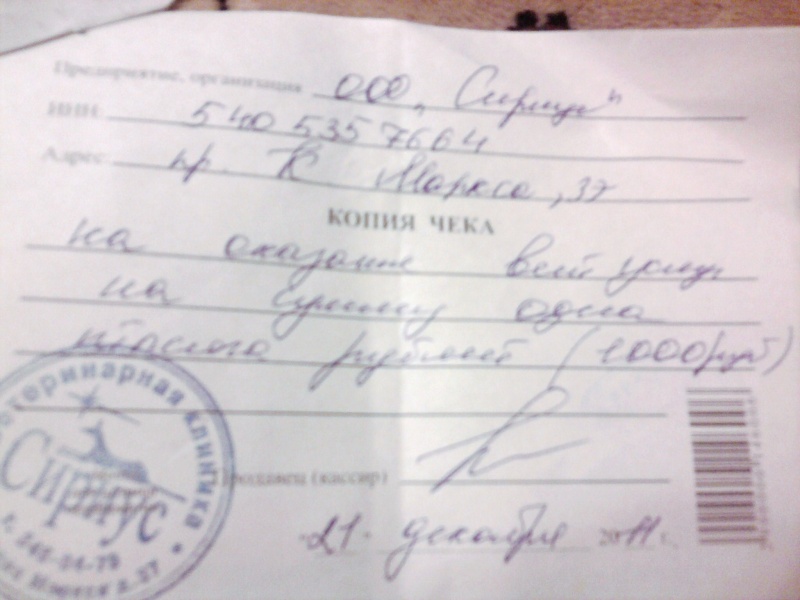 Предприятие, организация ООО "Сириус"
ИНН 5405357664
Адрес: пр. К Маркса, 37
КОПИЯ ЧЕКА
на оказание вет услуг
на сумму одна
тысяча рублей (1000 руб)
Продавец (кассир)
21 декабря 2011 г.
ветеринарная клиника
Сириус